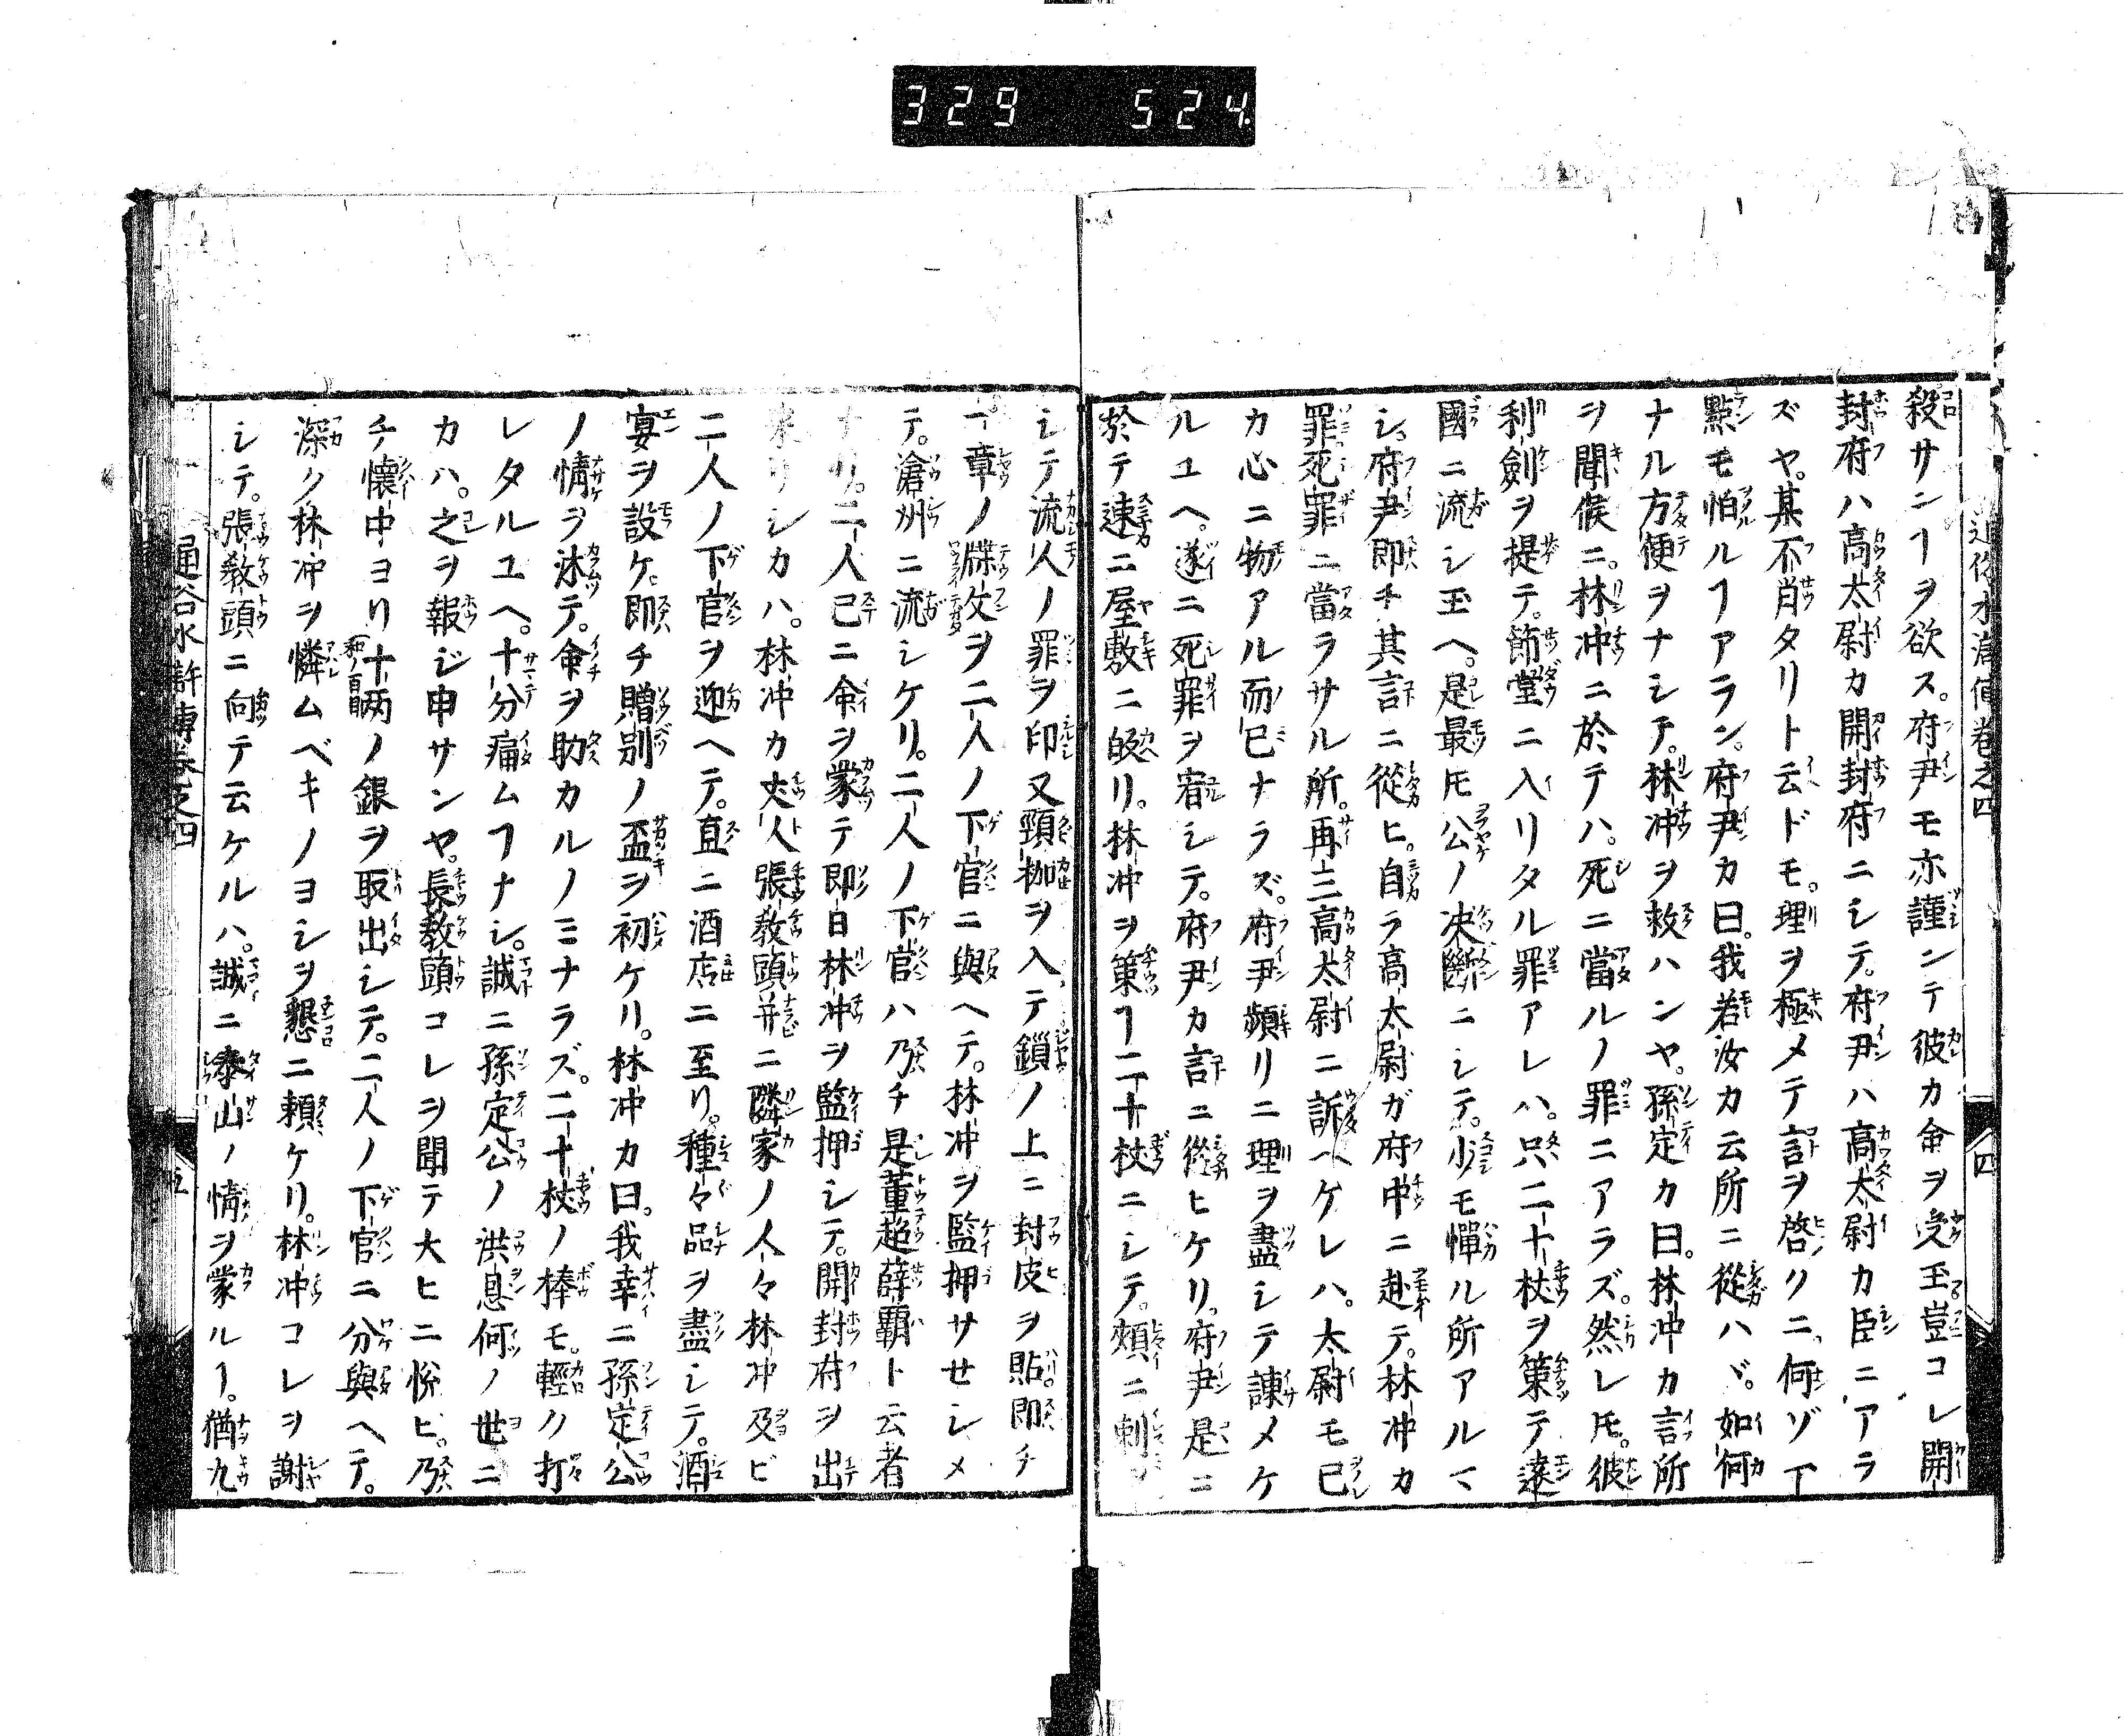 329 524.
通俗水滸傳卷之四
四
殺サンヿヲ欲ス。府尹モ亦謹ンテ彼カ命ヲ受玉豈コレ開
封府ハ高太尉カ開封府ニシテ。府尹ハ高太尉カ臣ニアラ
ズヤ。某不肖タリト云ドモ。理ヲ極メテ言ヲ啓クニ、何ゾ一
點モ怕ルヿアラン。府尹カ曰。我若汝カ云所ニ從ハヾ。如何
ナル方便ヲナシテ。林冲ヲ救ハンヤ。孫定カ曰。林冲カ言所
ヲ聞候ニ。林冲ニ於テハ。死ニ當ルノ罪ニアラズ。然レ𪜈。彼
利劍ヲ提テ。節堂ニ入リタル罪アレハ。只二十杖ヲ策テ遠
國ニ流シ玉ヘ。是最𪜈公ノ決斷ニシテ。少モ憚ル所アルマ
シ。府尹即チ其言ニ從ヒ。自ラ高太尉ガ府中ニ赴テ。林冲カ
罪死罪ニ當ラサル所。再三高太尉ニ訴ヘケレハ。太尉モ已
カ心ニ物アル而已ナラズ。府尹頻リニ理ヲ盡シテ諫メケ
ルユヘ。遂ニ死罪ヲ宥シテ。府尹カ言ニ從ヒケリ。府尹是ニ
於テ速ニ屋敷ニ皈リ。林冲ヲ策ヿ二十杖ニシテ。頰ニ刺ヲ
シテ流人ノ罪ヲ印又頸枷ヲ入テ鎖ノ上ニ封皮ヲ貼。即チ
一章ノ牒文ヲ二人ノ下官ニ與ヘテ。林冲ヲ監押サセシメ
テ。滄州ニ流シケリ。二人ノ下官ハ乃チ是董超薛霸ト云者
ナリ。二人已ニ命ヲ蒙テ即日林冲ヲ監押シテ。開封府ヲ出
來リシカハ。林冲カ丈人張敎頭并ニ隣家ノ人々林冲及ビ
二人ノ下官ヲ迎ヘテ。直ニ酒店ニ至リ。種々品ヲ盡シテ。酒
宴ヲ設ケ。即チ贈別ノ盃ヲ初ケリ。林冲カ曰。我幸ニ孫定公
ノ情ヲ沐テ。命ヲ助カルノミナラズ。二十杖ノ棒モ。輕ク打
レタルユヘ。十分痛ムヿナシ。誠ニ孫定公ノ洪恩何ノ世ニ
カハ。之ヲ報ジ申サンヤ。長敎頭コレヲ聞テ大ヒニ悅ヒ。乃
チ懷中ヨリ十兩ノ銀ヲ取出シテ。二人ノ下官ニ分與ヘテ。
深ク林冲ヲ憐ムベキノヨシヲ懇ニ賴ケリ。林冲コレヲ謝
シテ。張敎頭ニ向テ云ケルハ。誠ニ泰山ノ情ヲ蒙ルヿ。猶九
通俗水滸傳卷之四
五